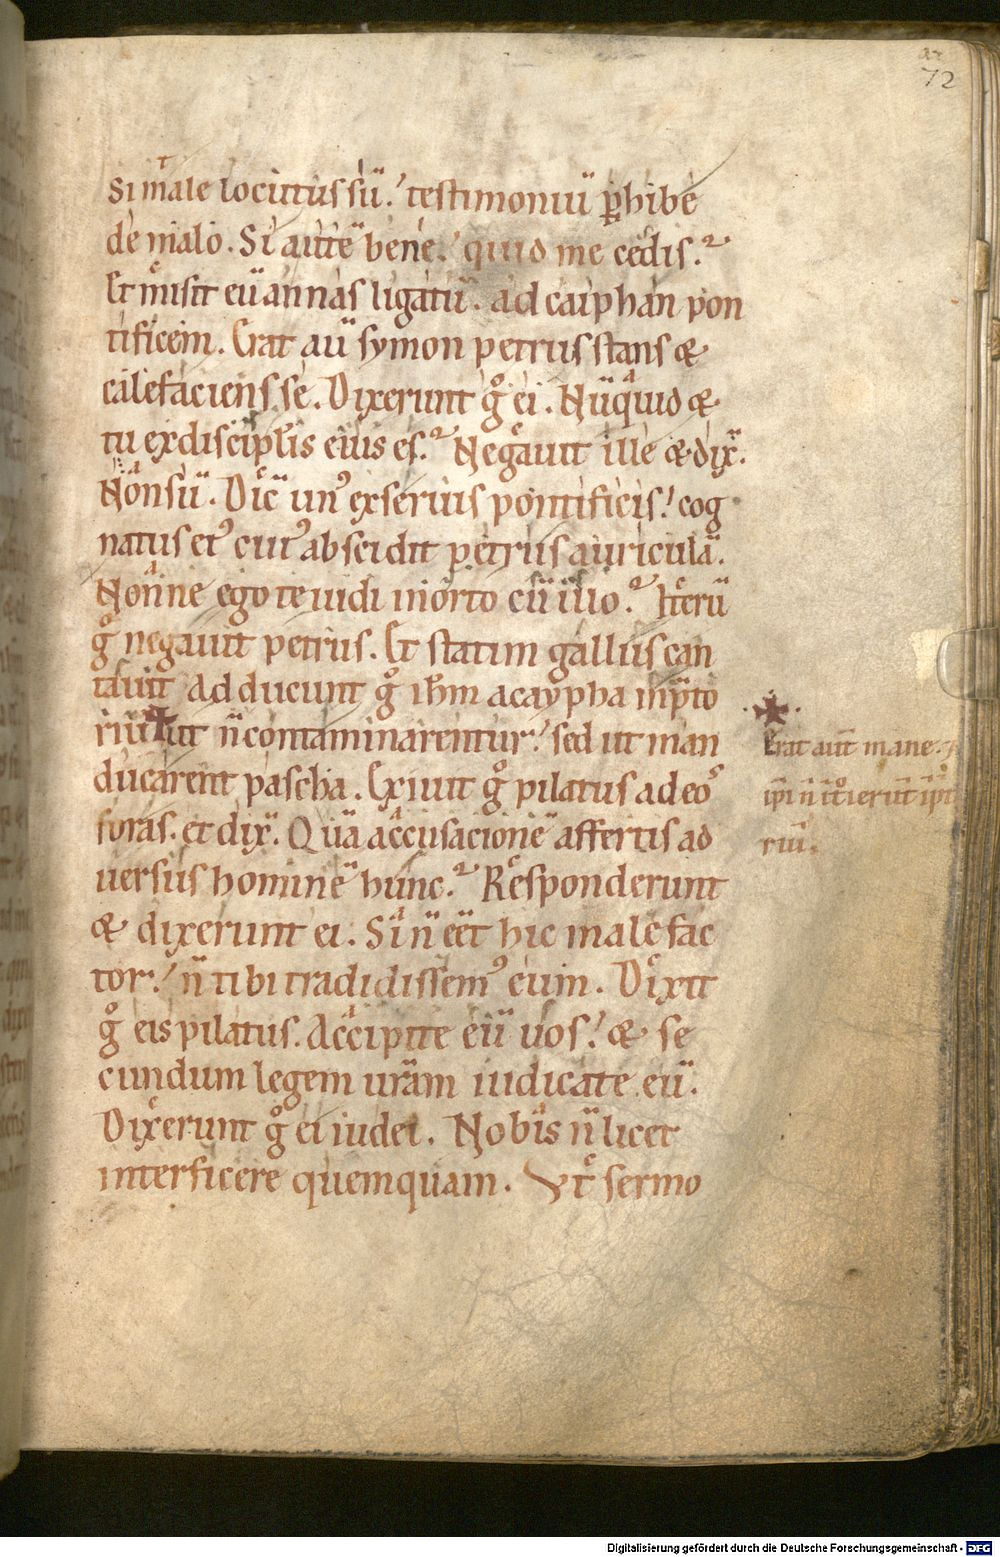 72
Si male locutus sū. testimoniū ꝑhibe
de malo. Si autē bene. quid me cedis.
Et misit eū annas ligatū. ad caiphan pon
tificem. Erat aū symon petrus stans &
calefaciens se. Dixerunt gͦ ei. Nūquid &
tu ex discipłis eius es. Negauit ille & dix̄.
Non sū. Dic̄ unꝰ ex seruis pontificis. cog
natus eiꝰ cuiꝰ abscidit petrus auriculā.
Nonne ego te uidi in orto cū illo. Iterū
gͦ negauit petrus. Et statim gallus can
tauit Adducunt gͦ ihm̄ a caypha in p̄to
riū ut n̄ contaminarentur. sed ut man
ducarent pascha. Exiuit gͦ pilatus ad eos
foras. et dix̄. Quā accusacionē affertis ad
uersus hominē hunc. Responderunt
& dixerunt ei. Si n̄ eēt hic malefac
tor. n̄ tibi tradidissemꝰ eum. Dixit
gͦ eis pilatus. Accipite eū uos. & se
cundum legem ur̄am iudicate eū.
Dixerunt gͦ ei iudei. Nobis n̄ licet
interficere quemquam. Ut sermo
Erat aut̄ mane. 
ip̄i n̄ int°ierunt ip̄t
riū.
Digitalisierung gefördert durch die Deutsche Forschungsgemeinschaft - DFG